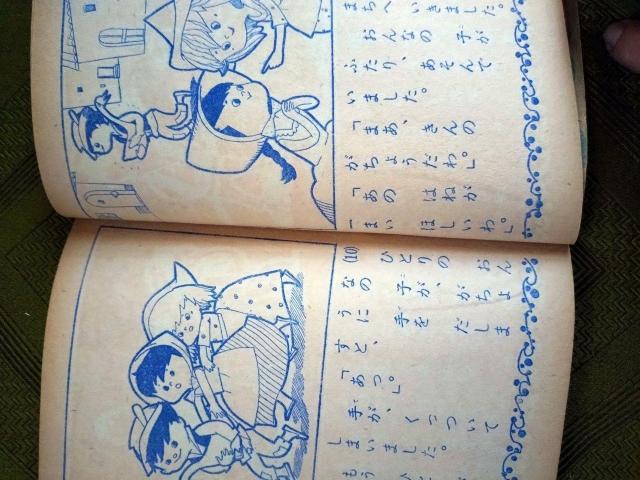 まちへ いきました。
おんなの 子が
ふたり、あそんで
いました。
「まあ、きんの
がちょうだわ。」
「あの はねが
一まい ほしいわ。」
(10)
ひとりの おん
なの 子が、がちょ
うに 手を だしま
すと、「あっ。」
手が、くっついて
しまいました。
もう